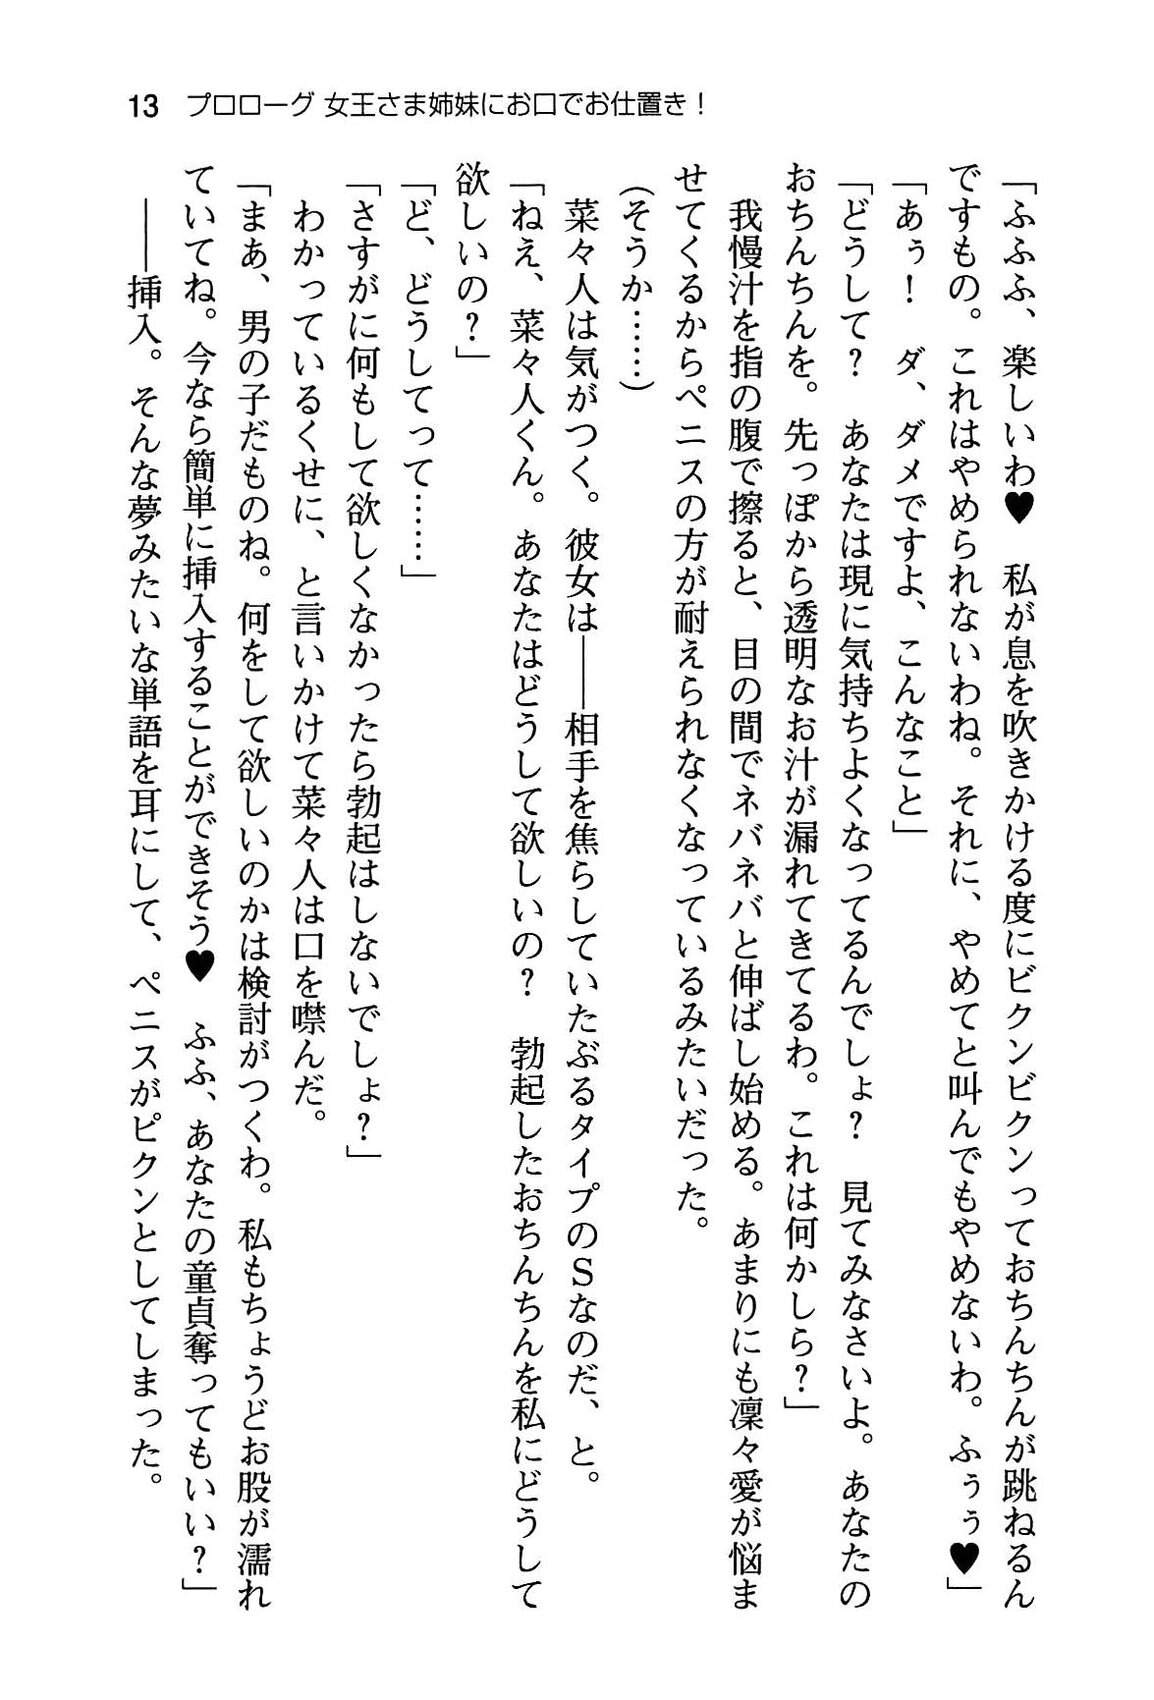 13 プロローグ 女王さま姉妹にお口でお仕置き！
「ふふふ、楽しいわ♥　私が息を吹きかける度にビクンビクンっておちんちんが跳ねるん
ですもの。これはやめられないわね。それに、やめてと叫んでもやめないわ。ふぅぅ♥」
「あぅ！　ダ、ダメですよ、こんなこと」
「どうして？　あなたは現に気持ちよくなってるんでしょ？　見てみなさいよ。あなたの
おちんちんを。先っぽから透明なお汁が漏れてきてるわ。これは何かしら？」
　我慢汁を指の腹で擦ると、目の間でネバネバと伸ばし始める。あまりにも凛々愛が悩ま
せてくるからペニスの方が耐えられなくなっているみたいだった。
（そうか……）
　菜々人は気がつく。彼女は――相手を焦らしていたぶるタイプのＳなのだ、と。
「ねえ、菜々人くん。あなたはどうして欲しいの？　勃起したおちんちんを私にどうして
欲しいの？」
「ど、どうしてって……」
「さすがに何もして欲しくなかったら勃起はしないでしょ？」
　わかっているくせに、と言いかけて菜々人は口を噤んだ。
「まあ、男の子だものね。何をして欲しいのかは検討がつくわ。私もちょうどお股が濡れ
ていてね。今なら簡単に挿入することができそう♥　ふふ、あなたの童貞奪ってもいい？」
　――挿入。そんな夢みたいな単語を耳にして、ペニスがピクンとしてしまった。